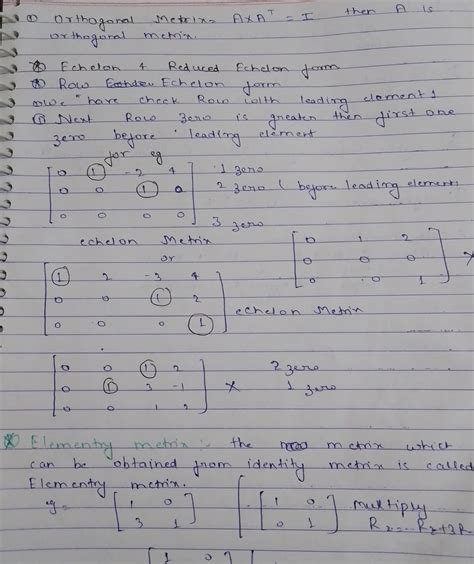 ① Orthogonal Metrix = A×Aᵀ = I then A is
orthogonal metrix.
Echelon & Reduced Echelon form
Row Echelon form
we have check Row with leading element 1
① Next Row zero is greater then first one
zero before leading element
for eg
[0 ① -2 4] 1 zero
[0 0 ① 0] 2 zero (before leading element)
[0 0 0 0] 3 zero
echelon Metrix
or
[0 1 2]
[0 0 0] ×
[0 0 1]
[① 2 -3 4]
[0 0 ① 2]
[0 0 0 ①] echelon Metrix
[0 0 ① 2] 2 zero
[0 ① 3 -1] × 1 zero
[0 0 1 2]
Elementry metrix :- the metrix which
can be obtained from identity metrix is called
Elementry metrix.
eg = [1 0] [1 0] multiply
[3 1] [0 1] R₂ = R₂+3R
[1 0]